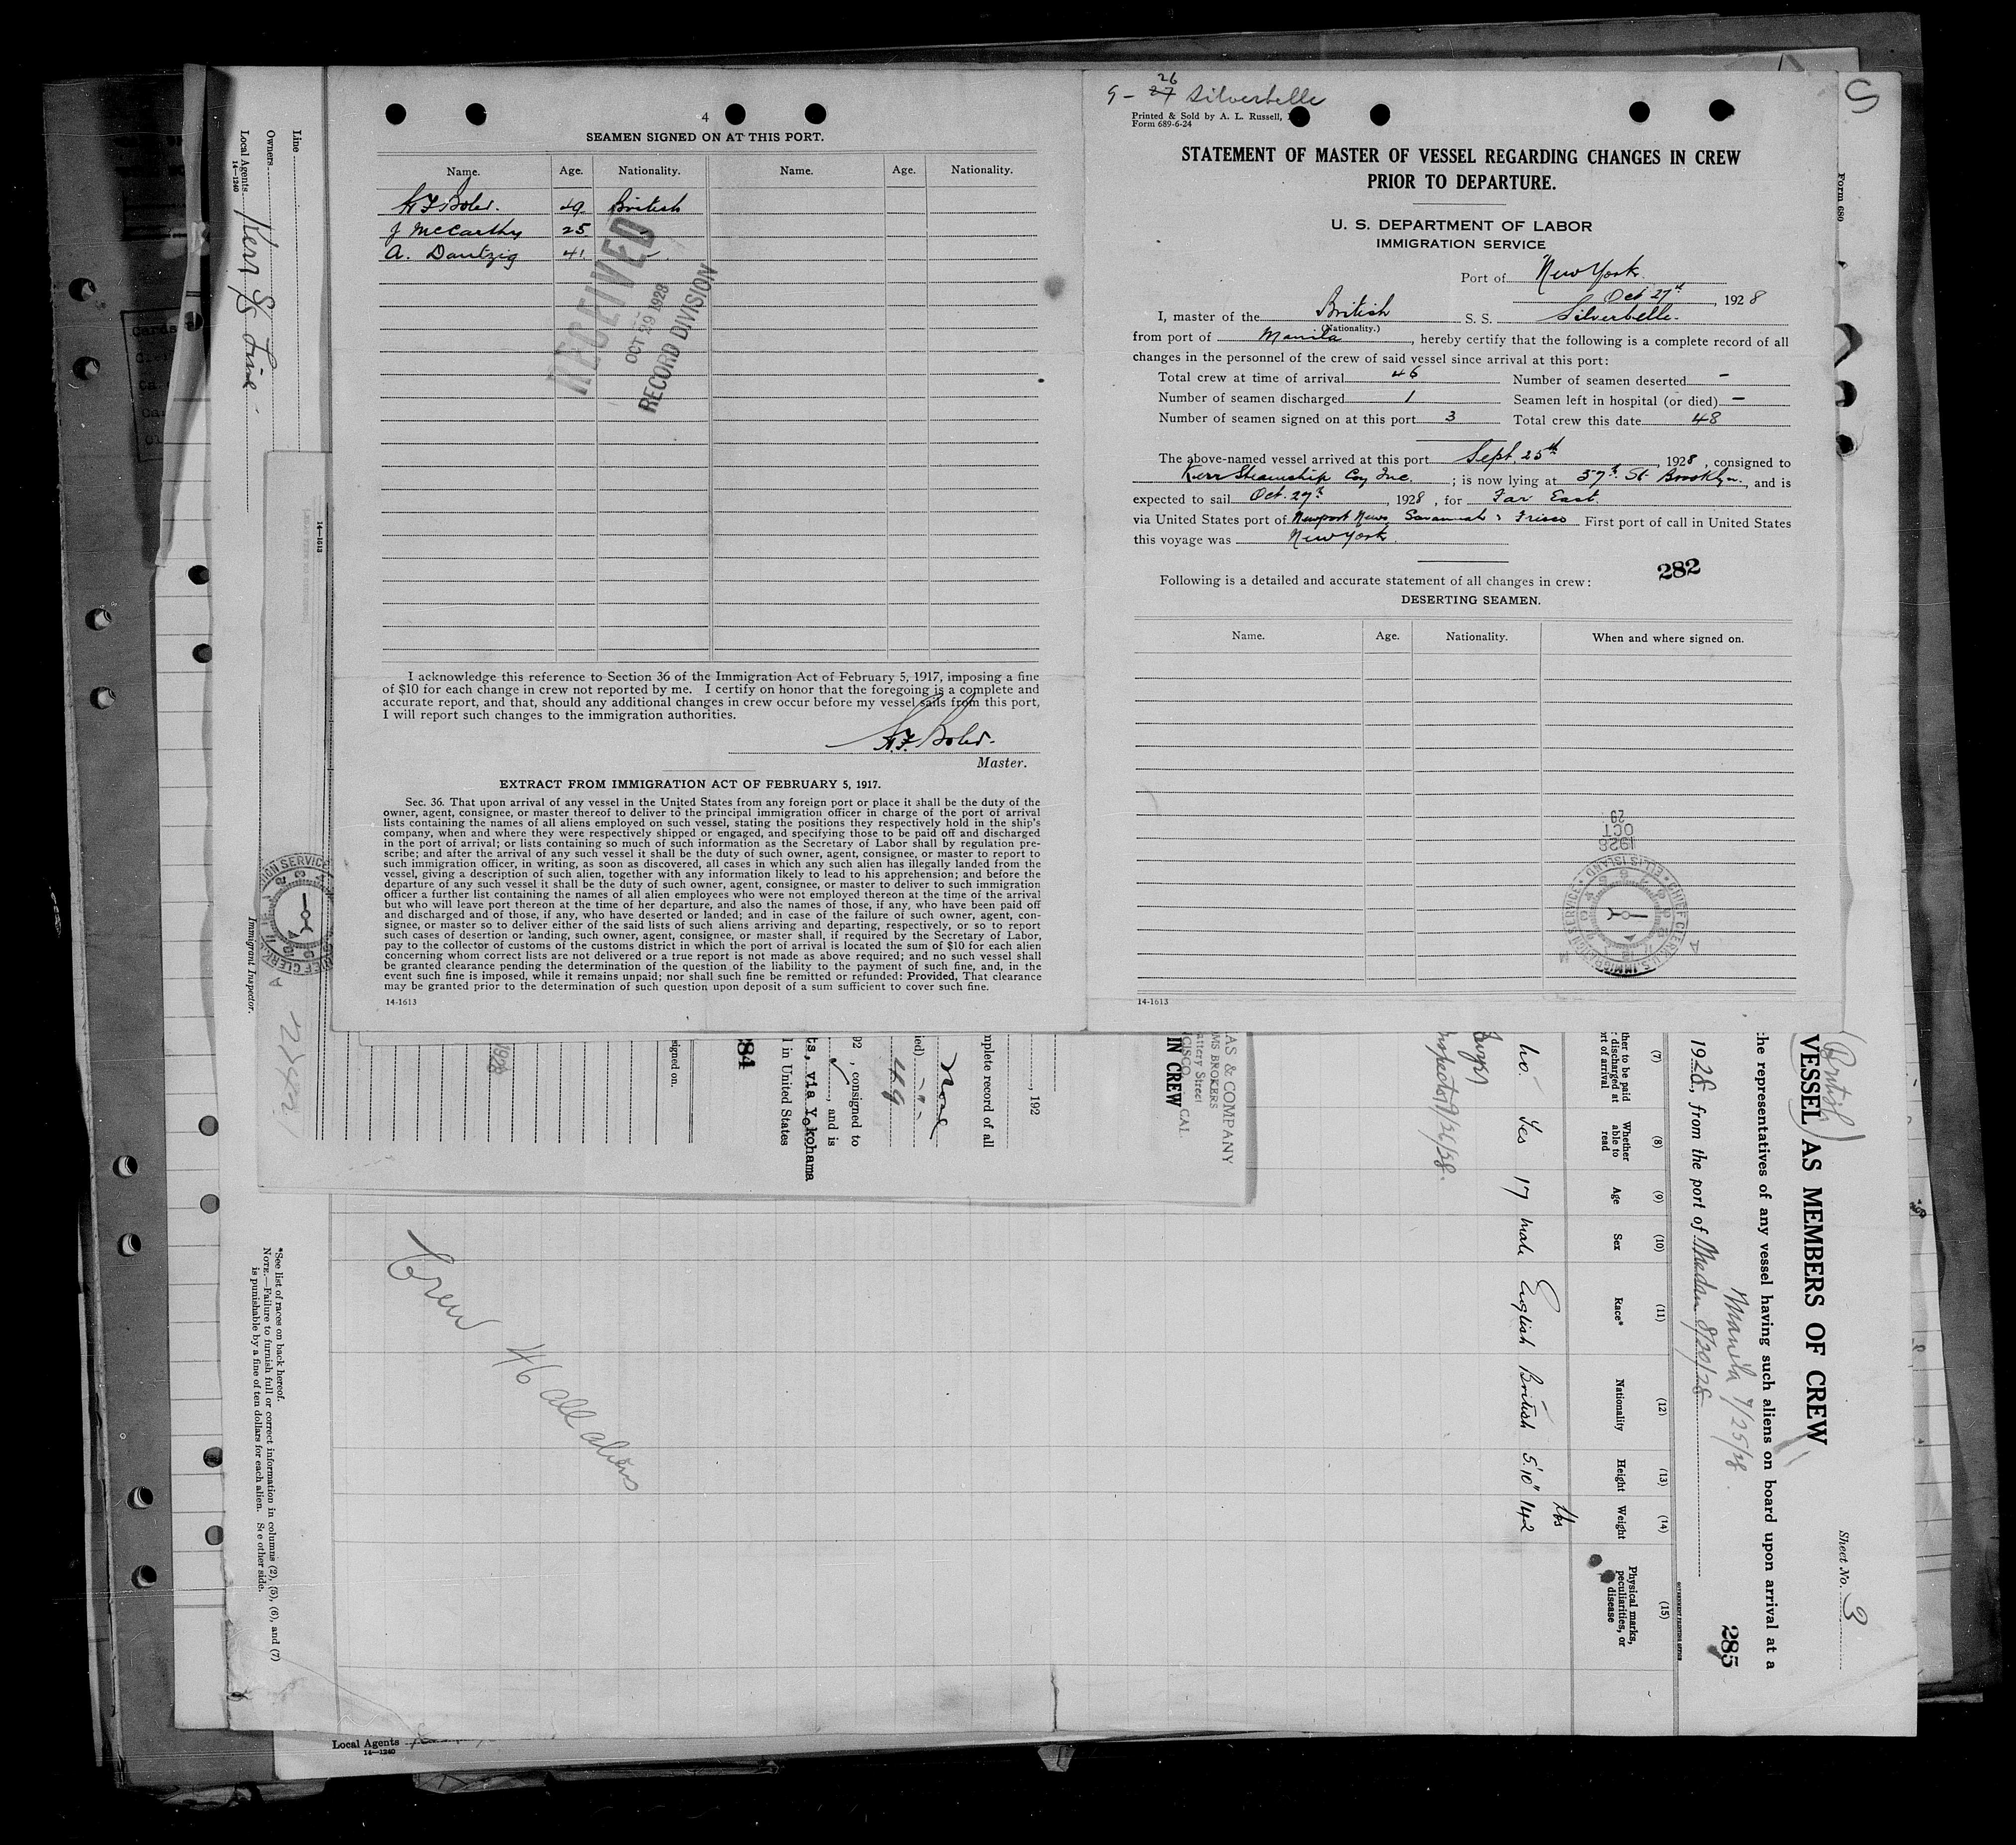 4
SEAMEN SIGNED ON AT THIS PORT.
Name. Age. Nationality. Name. Age. Nationality.
49 British
J McCarthy 25 "
A. Dantzig 41 "
RECEIVED
OCT 29 1928
RECORD DIVISION
I acknowledge this reference to Section 36 of the Immigration Act of February 5, 1917, imposing a fine
of $10 for each change in crew not reported by me. I certify on honor that the foregoing is a complete and
accurate report, and that, should any additional changes in crew occur before my vessel sails from this port,
I will report such changes to the immigration authorities.
Master.
EXTRACT FROM IMMIGRATION ACT OF FEBRUARY 5, 1917.
Sec. 36. That upon arrival of any vessel in the United States from any foreign port or place it shall be the duty of the
owner, agent, consignee, or master thereof to deliver to the principal immigration officer in charge of the port of arrival
lists containing the names of all aliens employed on such vessel, stating the positions they respectively hold in the ship's
company, when and where they were respectively shipped or engaged, and specifying those to be paid off and discharged
in the port of arrival; or lists containing so much of such information as the Secretary of Labor shall by regulation pre-
scribe; and after the arrival of any such vessel it shall be the duty of such owner, agent, consignee, or master to report to
such immigration officer, in writing, as soon as discovered, all cases in which any such alien has illegally landed from the
vessel, giving a description of such alien, together with any information likely to lead to his apprehension; and before the
departure of any such vessel it shall be the duty of such owner, agent, consignee, or master to deliver to such immigration
officer a further list containing the names of all alien employees who were not employed thereon at the time of the arrival
but who will leave port thereon at the time of her departure, and also the names of those, if any, who have been paid off
and discharged and of those, if any, who have deserted or landed; and in case of the failure of such owner, agent, con-
signee, or master so to deliver either of the said lists of such aliens arriving and departing, respectively, or so to report
such cases of desertion or landing, such owner, agent, consignee, or master shall, if required by the Secretary of Labor,
pay to the collector of customs of the customs district in which the port of arrival is located the sum of $10 for each alien
concerning whom correct lists are not delivered or a true report is not made as above required; and no such vessel shall
be granted clearance pending the determination of the question of the liability to the payment of such fine, and, in the
event such fine is imposed, while it remains unpaid; nor shall such fine be remitted or refunded: Provided, That clearance
may be granted prior to the determination of such question upon deposit of a sum sufficient to cover such fine.
14-1613
9 - 27 26 Silverbelle
Printed & Sold by A. L. Russell,
Form 689-6-24
STATEMENT OF MASTER OF VESSEL REGARDING CHANGES IN CREW
PRIOR TO DEPARTURE.
U. S. DEPARTMENT OF LABOR
IMMIGRATION SERVICE
Port of New York.
Oct 27th, 1928
I, master of the British S. S. Silverbelle.
(Nationality.)
from port of Manila, hereby certify that the following is a complete record of all
changes in the personnel of the crew of said vessel since arrival at this port:
Total crew at time of arrival 46 Number of seamen deserted —
Number of seamen discharged 1 Seamen left in hospital (or died) —
Number of seamen signed on at this port 3 Total crew this date 48
The above-named vessel arrived at this port Sept. 25th, 1928, consigned to
Kerr Steamship Coy Inc.; is now lying at 57th St Brooklyn, and is
expected to sail Oct. 27th, 1928, for Far East.
via United States port of Newport News, Savannah & Frisco First port of call in United States
this voyage was New York.
282
Following is a detailed and accurate statement of all changes in crew:
DESERTING SEAMEN.
Name. Age. Nationality. When and where signed on.
1928
OCT
29
CHIEF CLERK U.S. IMMIGRATION SERVICE
ELLIS ISLAND
14-1613
Line
Owners
Local Agents Kerr S/S Line
14-1240
Immigrant Inspector.
14-1613
*See list of races on back hereof.
NOTE.—Failure to furnish full or correct information in columns (2), (5), (6), and (7)
is punishable by a fine of ten dollars for each alien. See other side.
Crew 46 all aliens
signed on.
284
l in United States
ts, via Yokohama
, and is
92 , consigned to
ied) - " -
49
None
mplete record of all
, 192
IN CREW
CISCO, CAL.
ttery Street
MS BROKERS
AS & COMPANY
Form 680
Sheet No. 3
(British)
VESSEL AS MEMBERS OF CREW
he representatives of any vessel having such aliens on board upon arrival at a
Manila 7/25/28
1928, from the port of Medan 8/20/28
285
(7) (8) (9) (10) (11) (12) (13) (14) (15)
Whether able to read
Age
Sex
Race*
Nationality
Height
Weight
Physical marks, peculiarities, or disease
lbs
no Yes 17 male English British 5'10" 142
Local Agents
14-1240